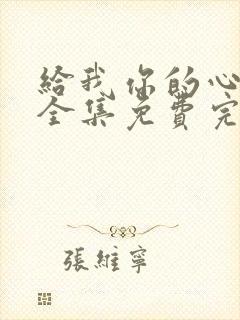 給我你的心
全集免費完
張維寧